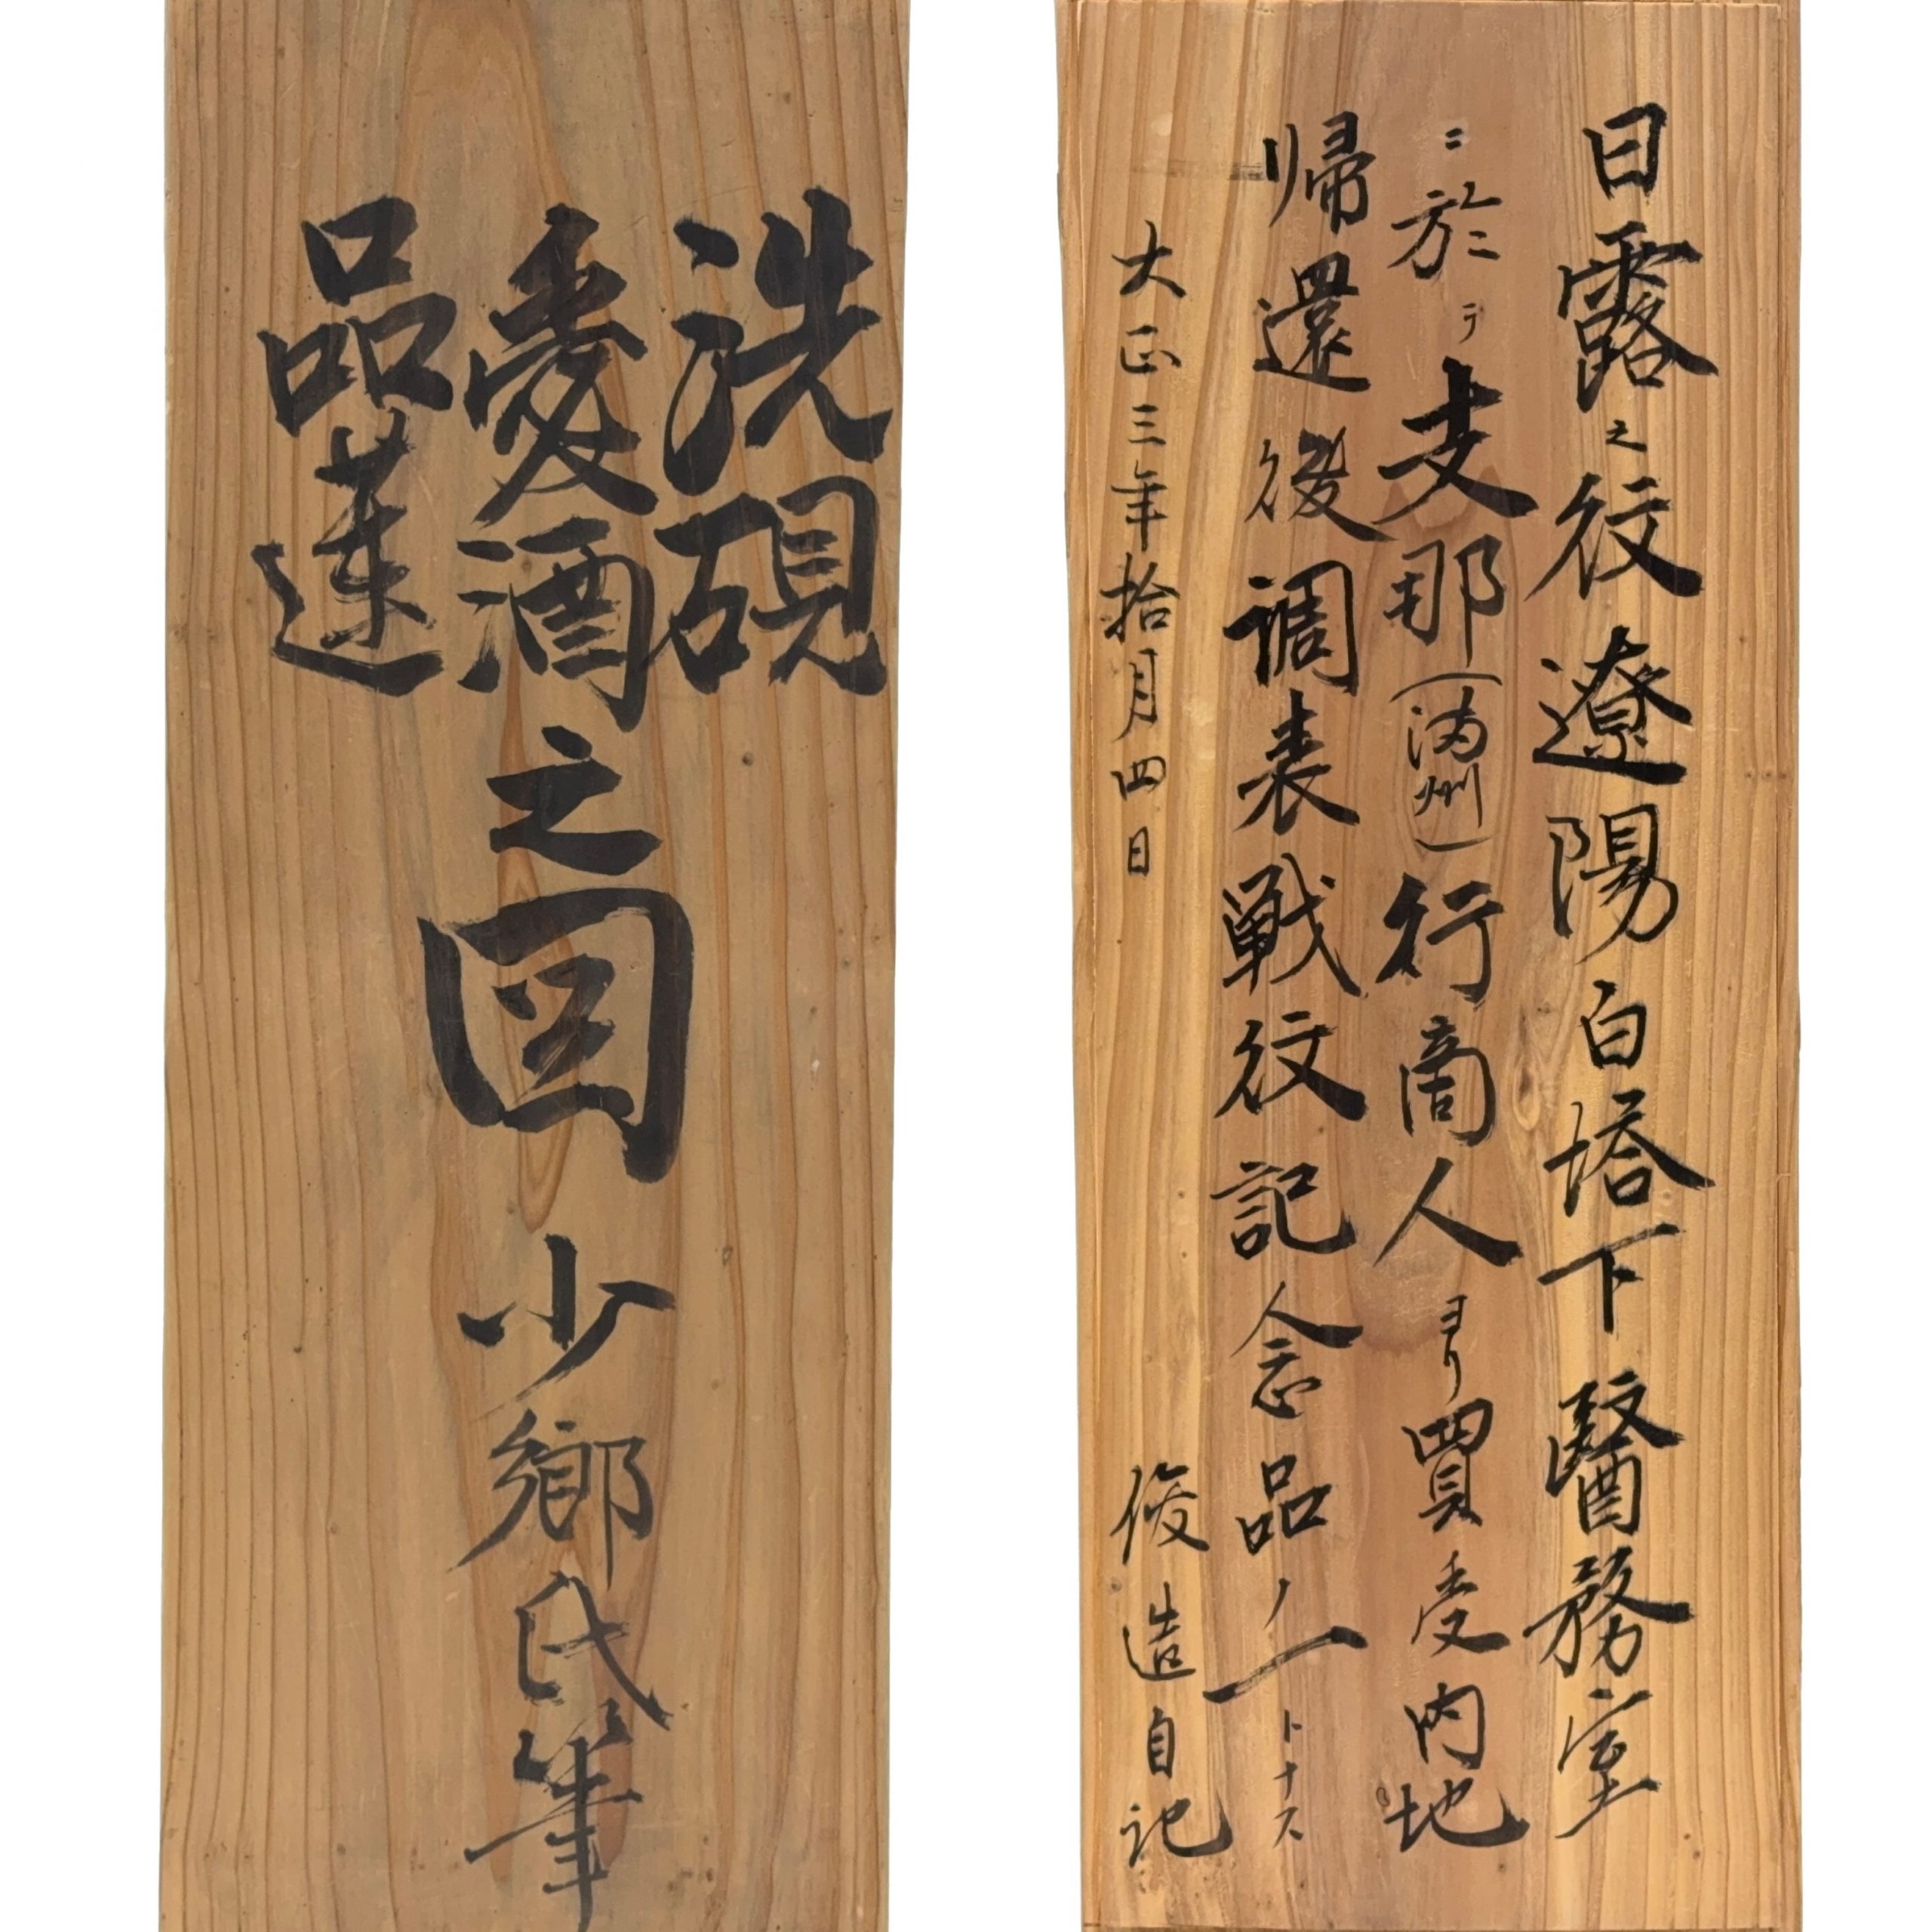 洗硯
愛酒
品蓮
之図 少郷氏筆
日露之役遼陽白塔下醫務室
ニ於テ支那(満州)行商人ヨリ買受内地
帰還後調表戦役記念品ノ一トナス
大正三年拾月四日 俊造自記